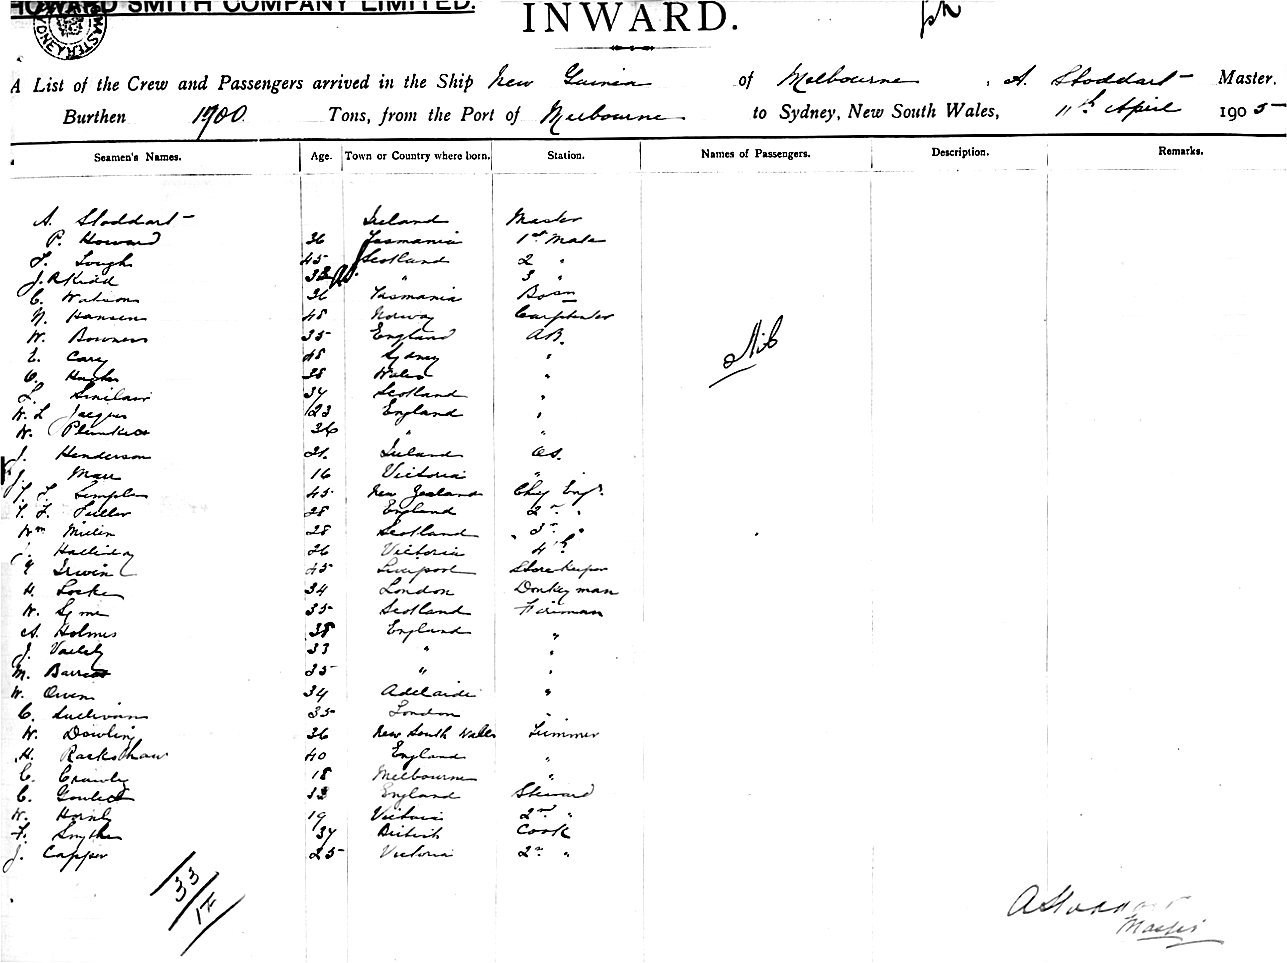 HOWARD SMITH COMPANY LIMITED.
INWARD.
A List of the Crew and Passengers arrived in the Ship New Guinea of Melbourne, A. Stoddart Master.
Burthen 1900 Tons, from the Port of Melbourne to Sydney, New South Wales, 11th April 1905
Seamen's Names. Age. Town or Country where born. Station. Names of Passengers. Description. Remarks.
A. Stoddart Ireland Master
P. Howard 36 Tasmania 1st Mate
45 Scotland 2 "
J. R Kidd " 3 "
C. Watson 36 Tasmania Bosn
N. Hansen 48 Norway Carpenter
W. 35 England AB.
E. Carey 48 Sydney "
C. Hughes 38 Wales "
L. Sinclair 34 Scotland "
W. L Jaques 23 England "
W. Plunkett 36 " "
J. Henderson 21 Ireland OS.
J. Marr 16 Victoria "
45 New Zealand Chf Engr.
28 England 2nd "
Wm 28 Scotland 3rd "
Halliday 26 Victoria 4th
Irwin 45 Liverpool Storekeeper
H. Locke 34 London Donkeyman
W. Syme 35 Scotland Fireman
A. Holmes 38 England "
J. 33 " "
M. Barrett 35 " "
W. Owen 34 Adelaide "
C. Sullivan 35 London "
W. Dowling 36 New South Wales Trimmer
H. Rackshaw 40 England "
C. Crawley 18 Melbourne "
C. England Steward
W. Hornby 19 Victoria 2nd "
F. Smythe 37 British Cook
J. Capper 25 Victoria 2nd "
Nil
33
17
A Stoddart
Master